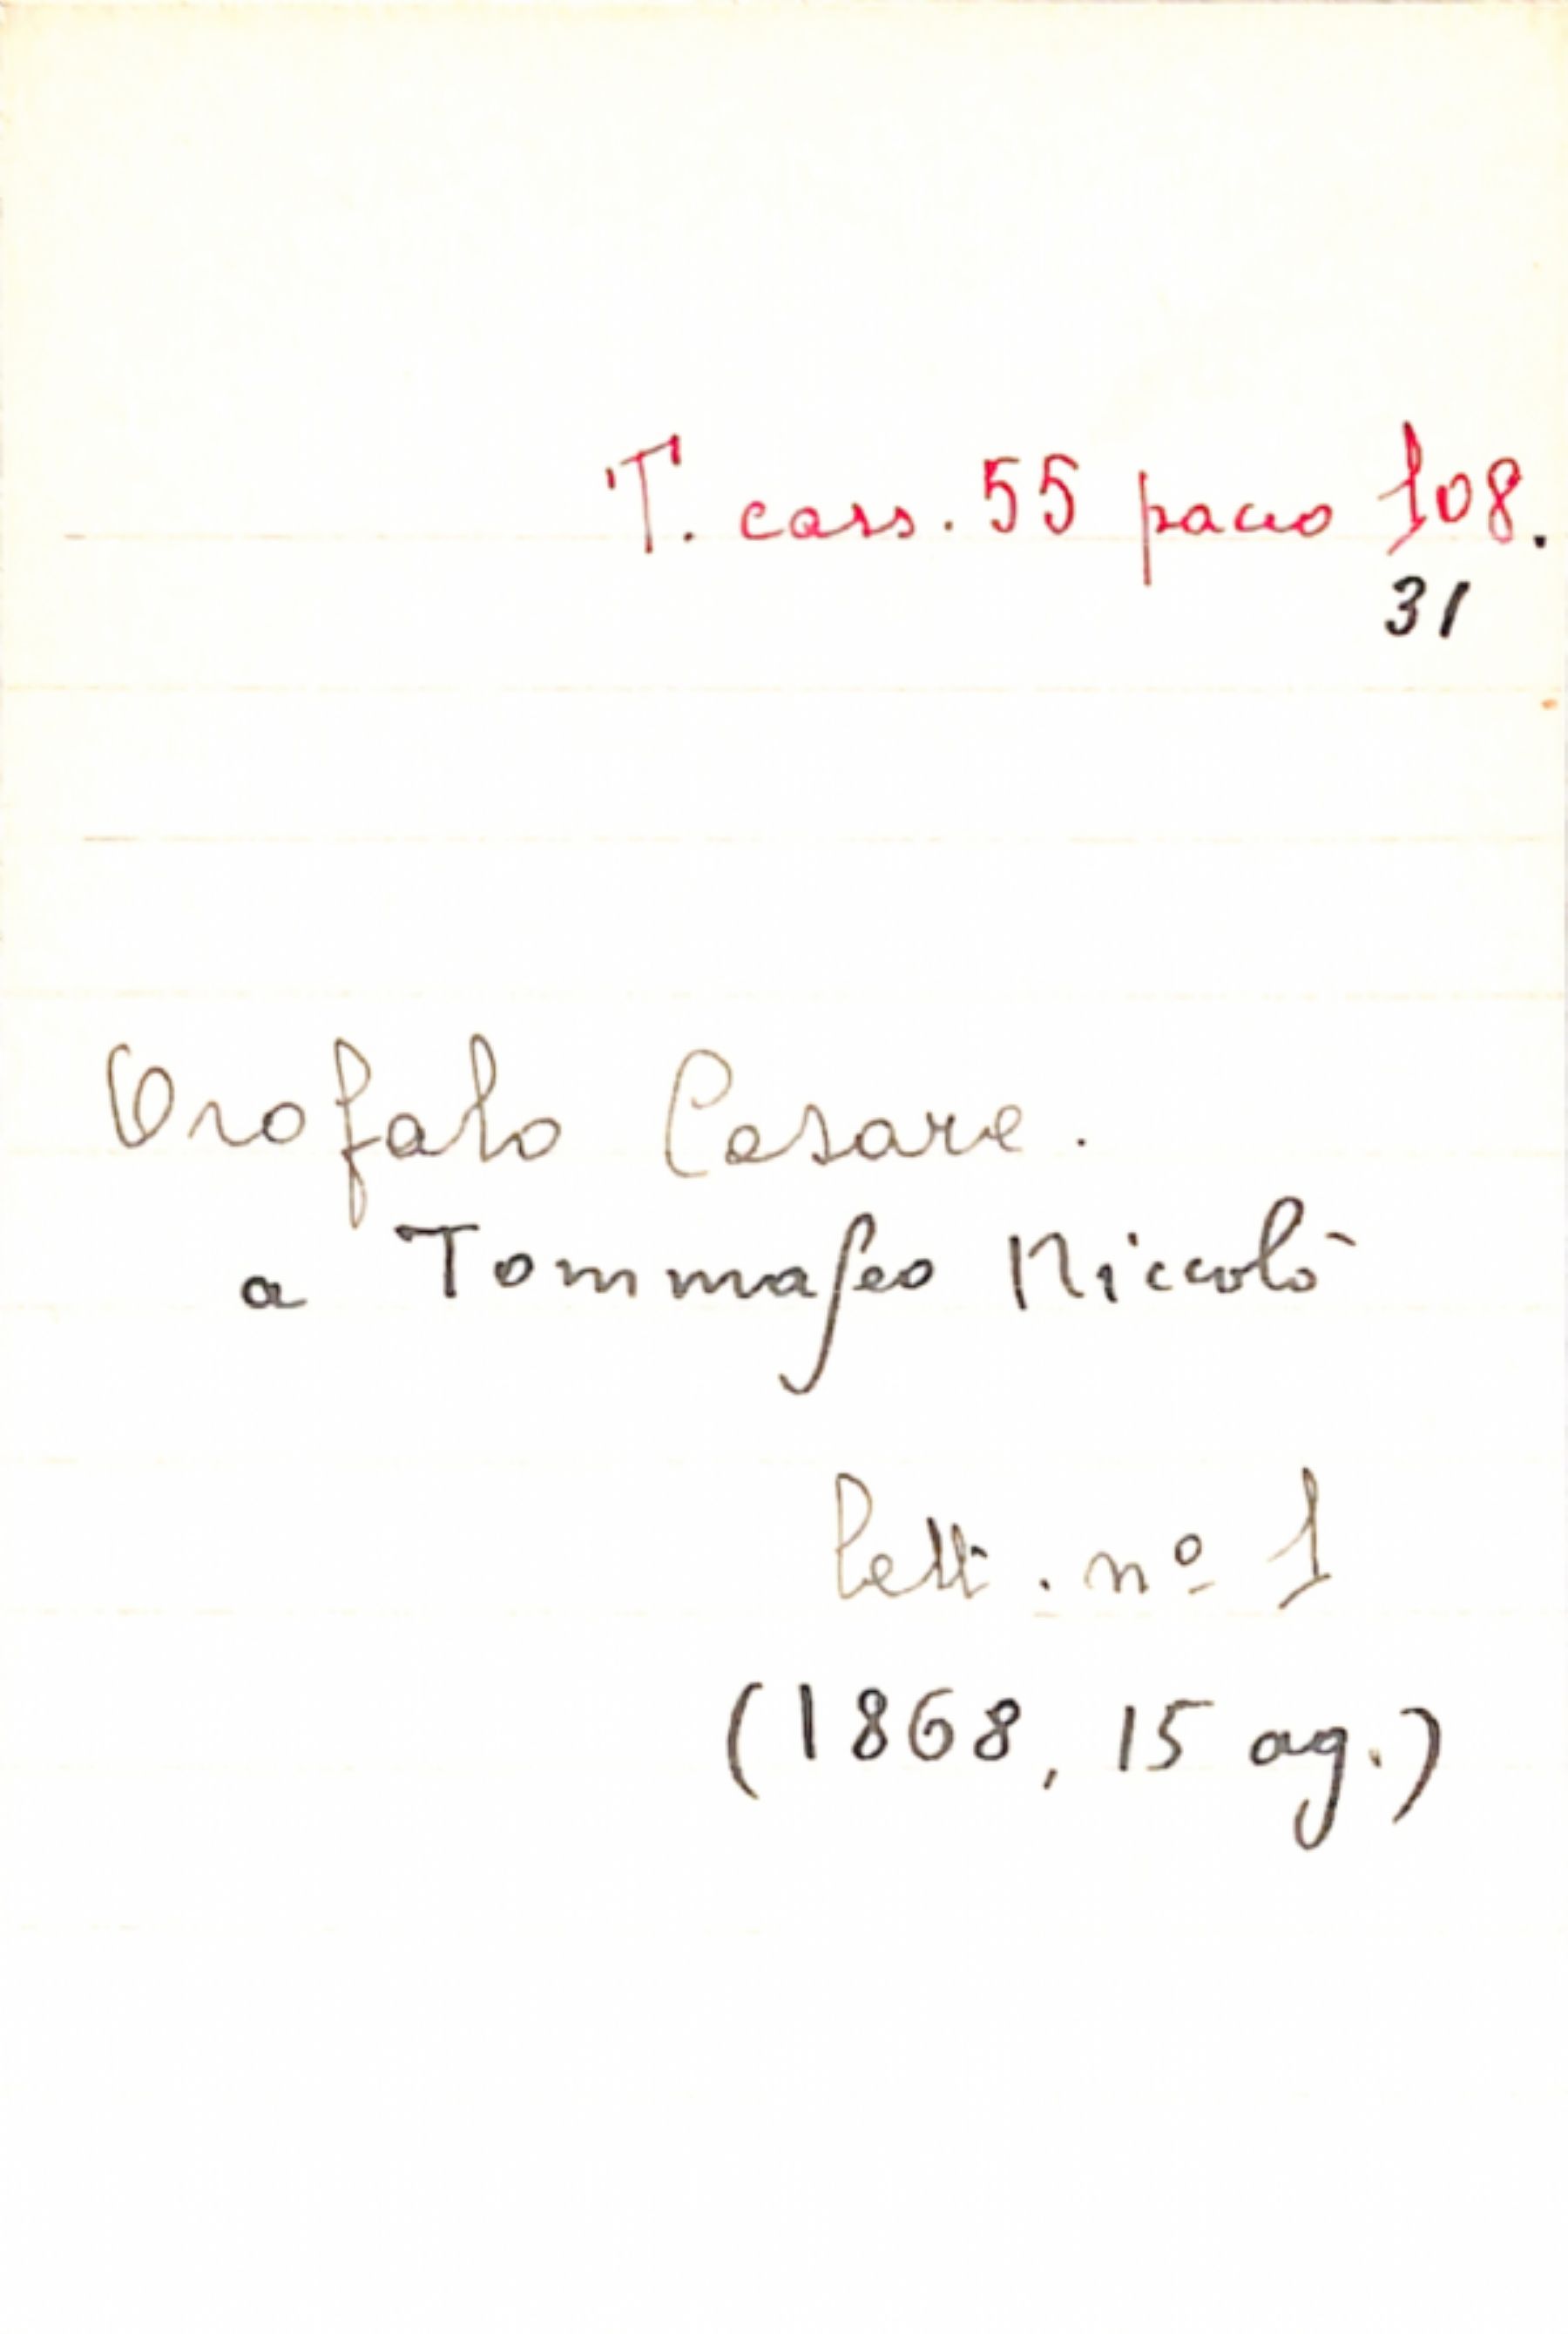 T. cass. 55 pacco 108.
31
Orofalo Cesare.
a Tommaseo Niccolò
Lett. nº 1
(1868, 15 ag.)